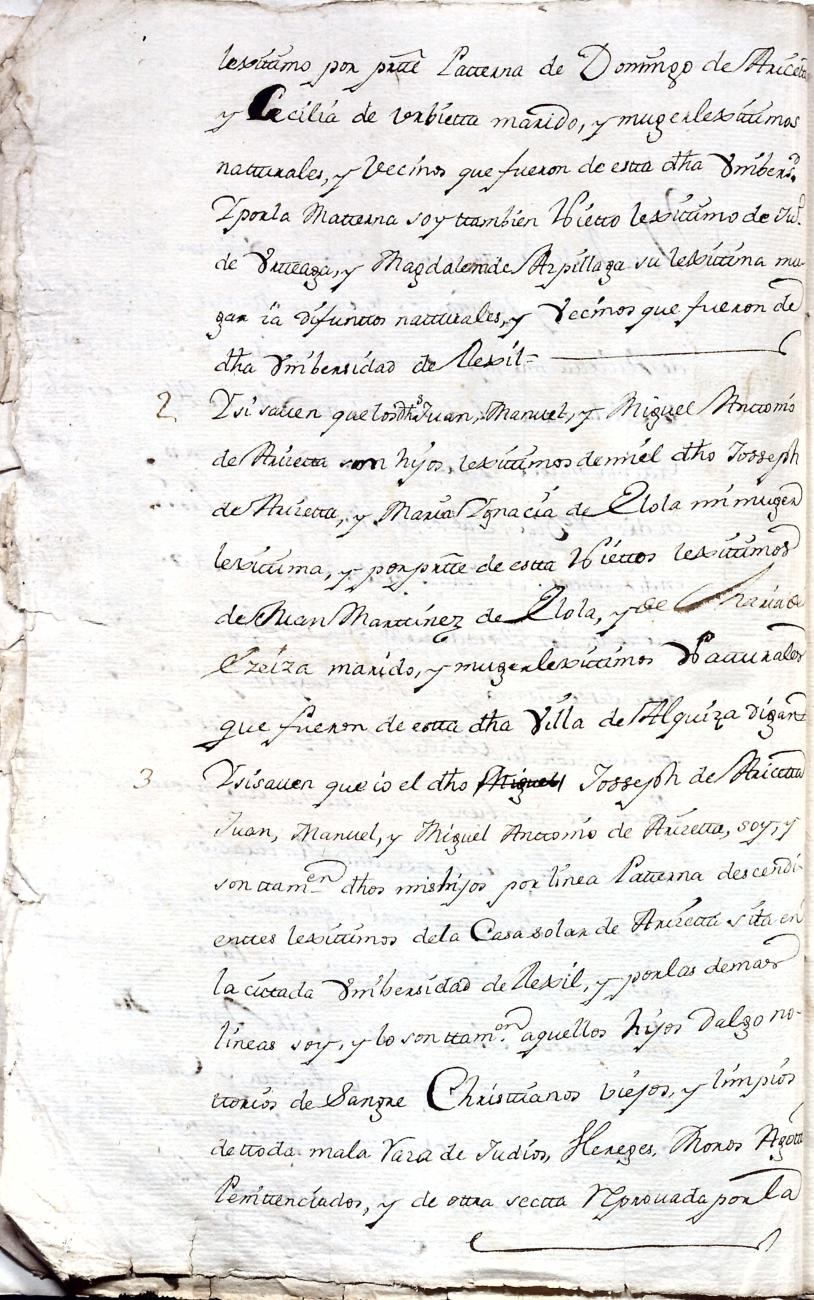 lexittimo por prtte Patterna de Domingo de Arietta
y Cecilia de Urbietta marido, y muger lexittimos
natturales, y Vecinos que fueron de estta dha Vniversd.
Y por la Matterna soy ttambien Nietto lexittimo de Jun.
de Vrtteaga, y Magdalena de Arpillaga su lexittima mu-
ger ia difunttos natturales, y Vecinos que fueron de
dha Vnibersidad de Rexil=
2 Y si sauen que los dhos Juan, Manuel, y Miguel Anttonio
de Arietta son hijos lexittimos de mi el dho Josseph
de Arietta, y Maria Ygnacia de Elola mi muger
lexittima, y por prtte de estta Niettos lexittimos
de Juan Marttinez de Elola, y de Maria de
Ezeiza marido, y muger lexittimos Natturales
que fueron de estta dha Villa de Alquiza digan
3 Y si sauen que io el dho Miguel Josseph de Arietta
Juan, Manuel, y Miguel Anttonio de Arietta, soy, y
son ttamen. dhos mis hijos por linea Patterna descendi-
enttes lexittimos de la Casa solar de Arietta sita en
la cittada Vnibersidad de Rexil, y por las demas
lineas soy, y lo son ttamen. aquellos hijos dalgo no-
ttorios de Sangre Christtianos viejos, y limpios
de ttoda mala raza de Judios, Hereges, Moros Agotes
Penittenciados, y de ottra sectta Reprouada por la